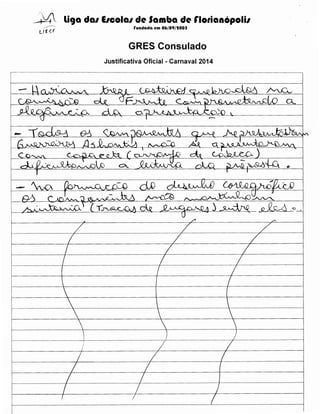 Liga das Escolas de Samba de Florianópolis
Fundada em 06/09/2005
LIESF
GRES Consulado
Justificativa Oficial - Carnaval 2014
- Haviam treze costeiros quebrados na
comissão de "Frente comprometendo a
elegância da apresentação.
- Todos os componentes que representavam
Guerreiros Ashantis, não se apresentaram
com capacete (arranjo de cabeça)
dificultando a leitura da proposta.
- Na formação do desenho coreográfico
os componentes não mantinham
sintonia (Trocas de lugares) entre eles.